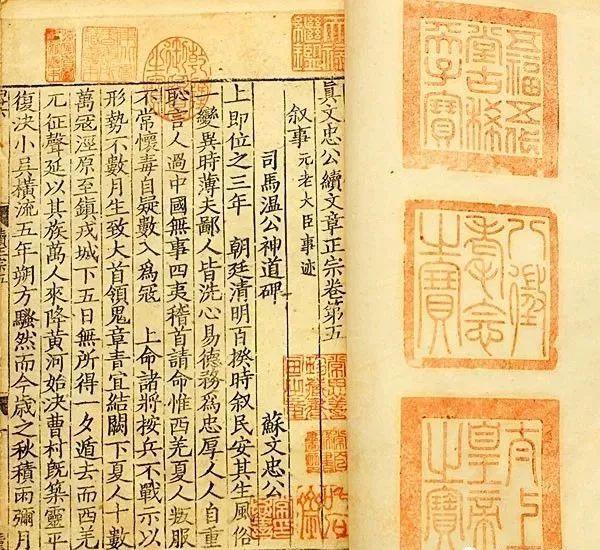 五福五代
堂古稀
天子寶
八徵
耄念
之寶
太上
皇帝
之寶
天祿
繼鑑
乾隆
御覽
之寶
眞文忠公續文章正宗卷第五
叙事 元老大臣事迹
司馬温公神道碑 蘇文忠公
上即位之三年 朝廷清明百揆時叙民安其生風俗
一變異時薄夫鄙人皆洗心易德務爲忠厚人人自重
恥言人過中國無事四夷稽首請命惟西羌夏人叛服
不常懷毒自疑數入爲寇 上命諸將按兵不戰示以
形勢不數月生致大首領鬼章青宜結闕下夏人十數
萬寇涇原至鎮戎城下五日無所得一夕遁去而西羌
元征聲延以其族萬人來降黃河始決曹村旣築靈平
復決小吳橫流五年朔方騷然而今歲之秋積雨彌月